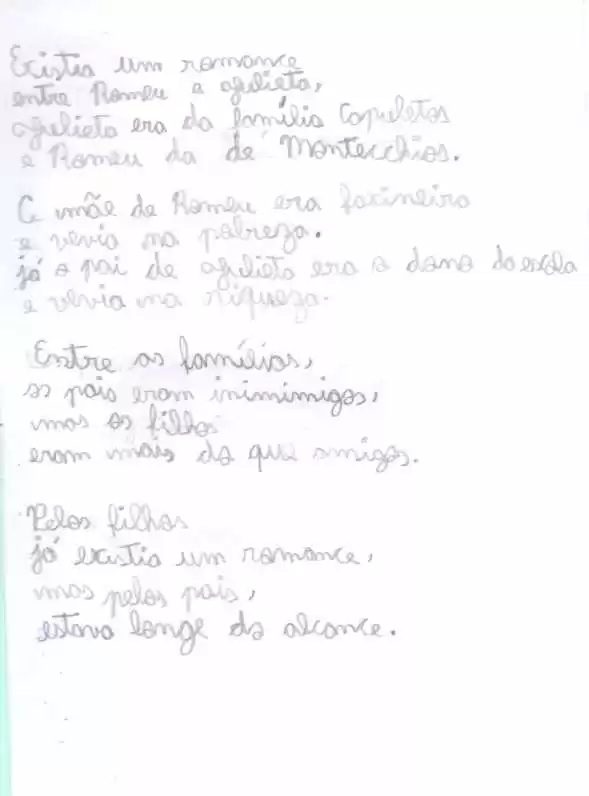 Existia um romance
entre Romeu e Julieta,
Julieta era da família Capuletos
e Romeu da de Montecchios.
A mãe de Romeu era faxineira
e vevia na pobreza.
já o pai de Julieta era o dono da escola
e vevia na riqueza.
Entre as famílias,
os pais eram inimimigos,
mas os filhos
eram mais do que amigos.
Pelos filhos
já existia um romance,
mas pelos pais,
estava longe do alcance.